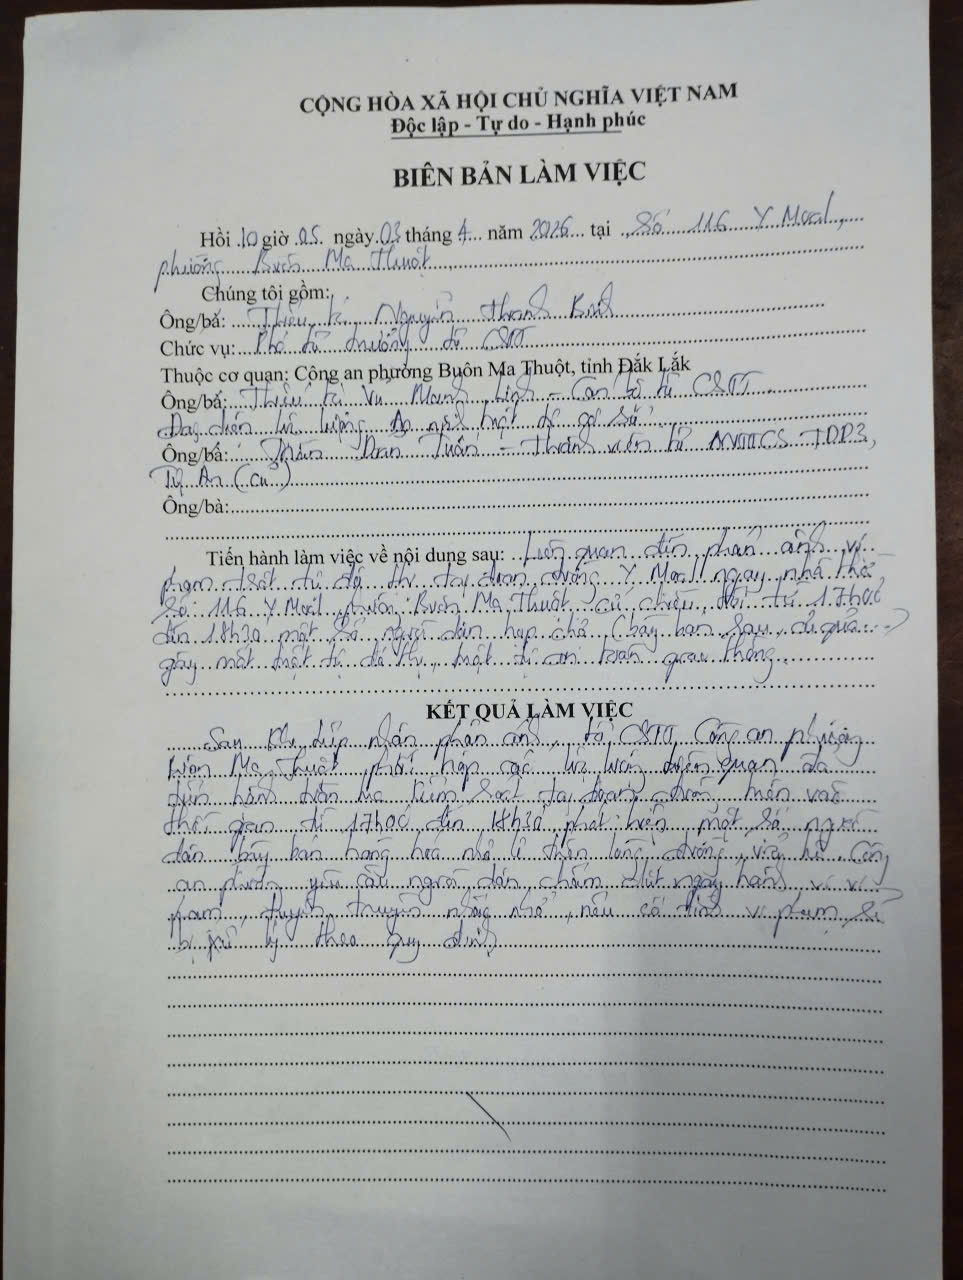 CỘNG HÒA XÃ HỘI CHỦ NGHĨA VIỆT NAM
Độc lập - Tự do - Hạnh phúc
BIÊN BẢN LÀM VIỆC
Hồi 10 giờ 05 ngày 03 tháng 4 năm 2026 tại Số 116 Y Moal,
phường Buôn Ma Thuột
Chúng tôi gồm:
Ông/bà: Thiếu tá Nguyễn Thanh Bình
Chức vụ: Phó tổ trưởng tổ CSTT
Thuộc cơ quan: Công an phường Buôn Ma Thuột, tỉnh Đắk Lắk
Ông/bà: Thiếu tá Vũ Mạnh Linh - Cán bộ tổ CSTT
Đại diện lực lượng An ninh trật tự cơ sở
Ông/bà: Trần Doãn Tuấn - Thành viên tổ ANTTCS TDP3,
Tự An (cũ)
Ông/bà:
Tiến hành làm việc về nội dung sau: Liên quan đến phản ánh vi
phạm trật tự đô thị tại đoạn đường Y Moal ngay nhà thờ,
Số 116 Y Moal, phường Buôn Ma Thuột cứ chiều tối từ 17h00
đến 18h30 một số người dân họp chợ (bày bán rau, củ quả...)
gây mất trật tự đô thị, trật tự an toàn giao thông.
KẾT QUẢ LÀM VIỆC
Sau khi tiếp nhận phản ánh, tổ CSTT Công an phường
Buôn Ma Thuột phối hợp các lực lượng liên quan đã
tiến hành tuần tra kiểm soát tại đoạn đường trên vào
thời gian từ 17h00 đến 18h30 phát hiện một số người
dân bày bán hàng hóa nhỏ lẻ trên lòng đường, Công
an phường yêu cầu người dân chấm dứt ngay hành vi vi
phạm, tuyên truyền nhắc nhở, nếu cố tình vi phạm sẽ
bị xử lý theo quy định